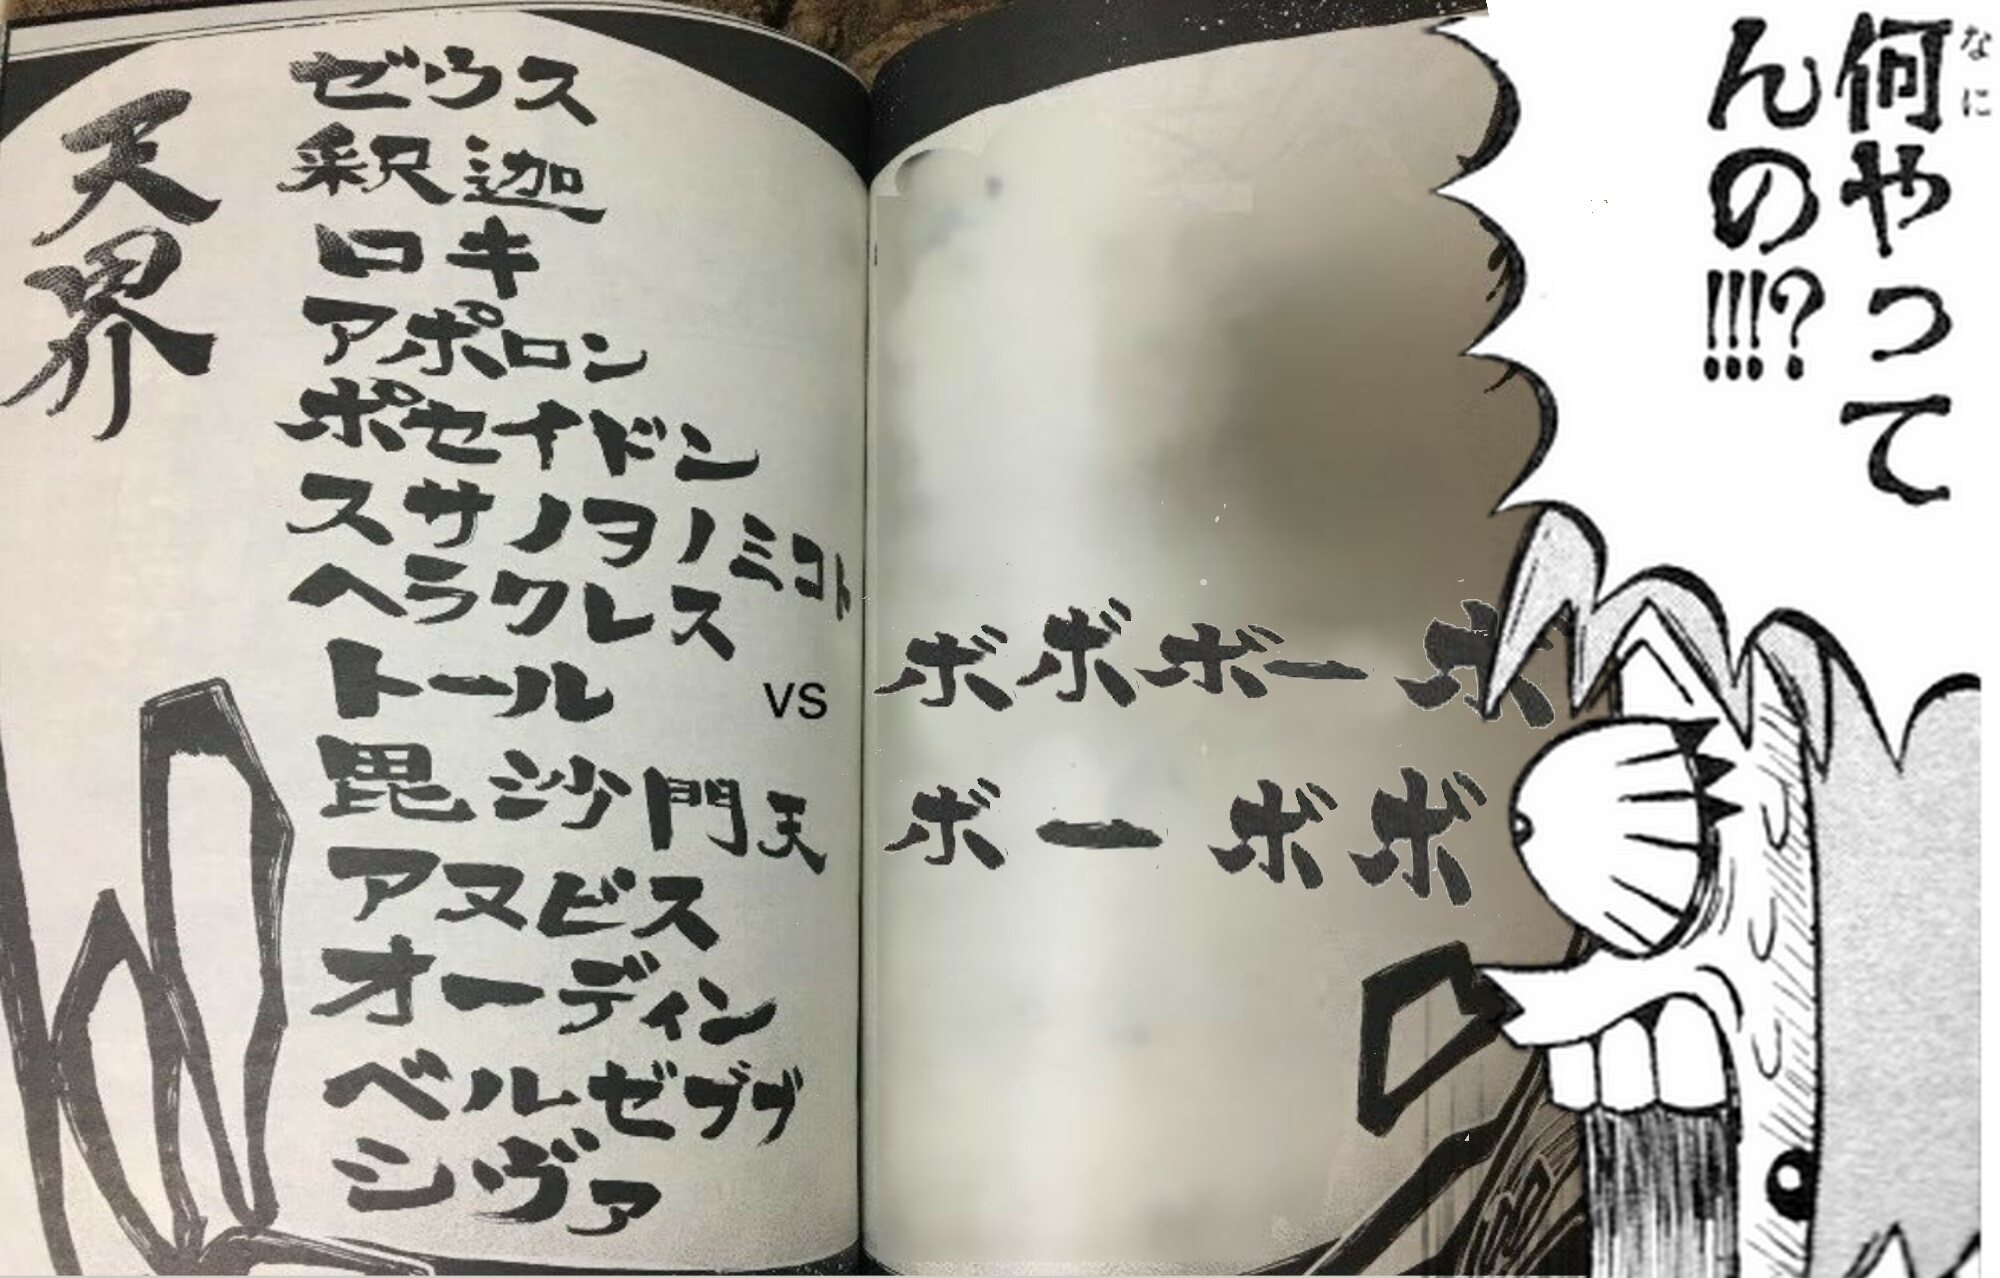 天界
ゼウス
釈迦
ロキ
アポロン
ポセイドン
スサノヲノミコト
ヘラクレス
トール
毘沙門天
アヌビス
オーディン
ベルゼブブ
シヴァ
vs
ボボボーボ
ボーボボ
何やって
なに
んの!!!?